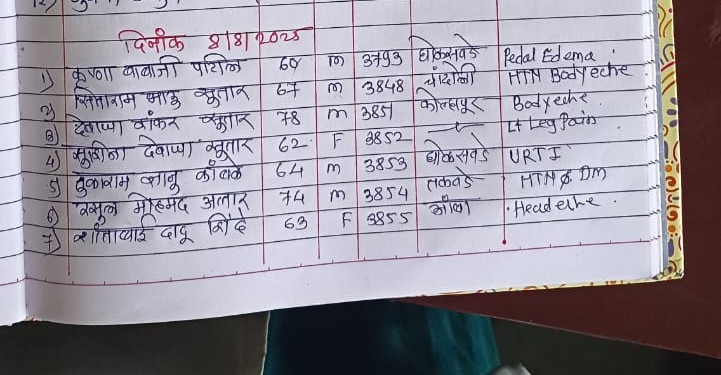 दिनांक 8/8/2025
1) कृष्णा बाबाजी पाटील 60 m 3793 घोकसवडे Pedal Edema
2) सिताराम भाऊ सुतार 67 m 3848 चांदोली HTN Bodyeche
3) देवाप्पा शंकर सुतार 78 m 3851 कोल्हापूर Bodyeche
4) सुशीला देवाप्पा सुतार 62 F 3852 Lt Leg Pain
5) तुकाराम कांबळे 64 m 3853 घोकसवडे URTI
6) रसूल मोहमद अत्तार 74 m 3854 HTN & DM
7) शांताबाई दादू शिंदे 63 F 3855 Headeche